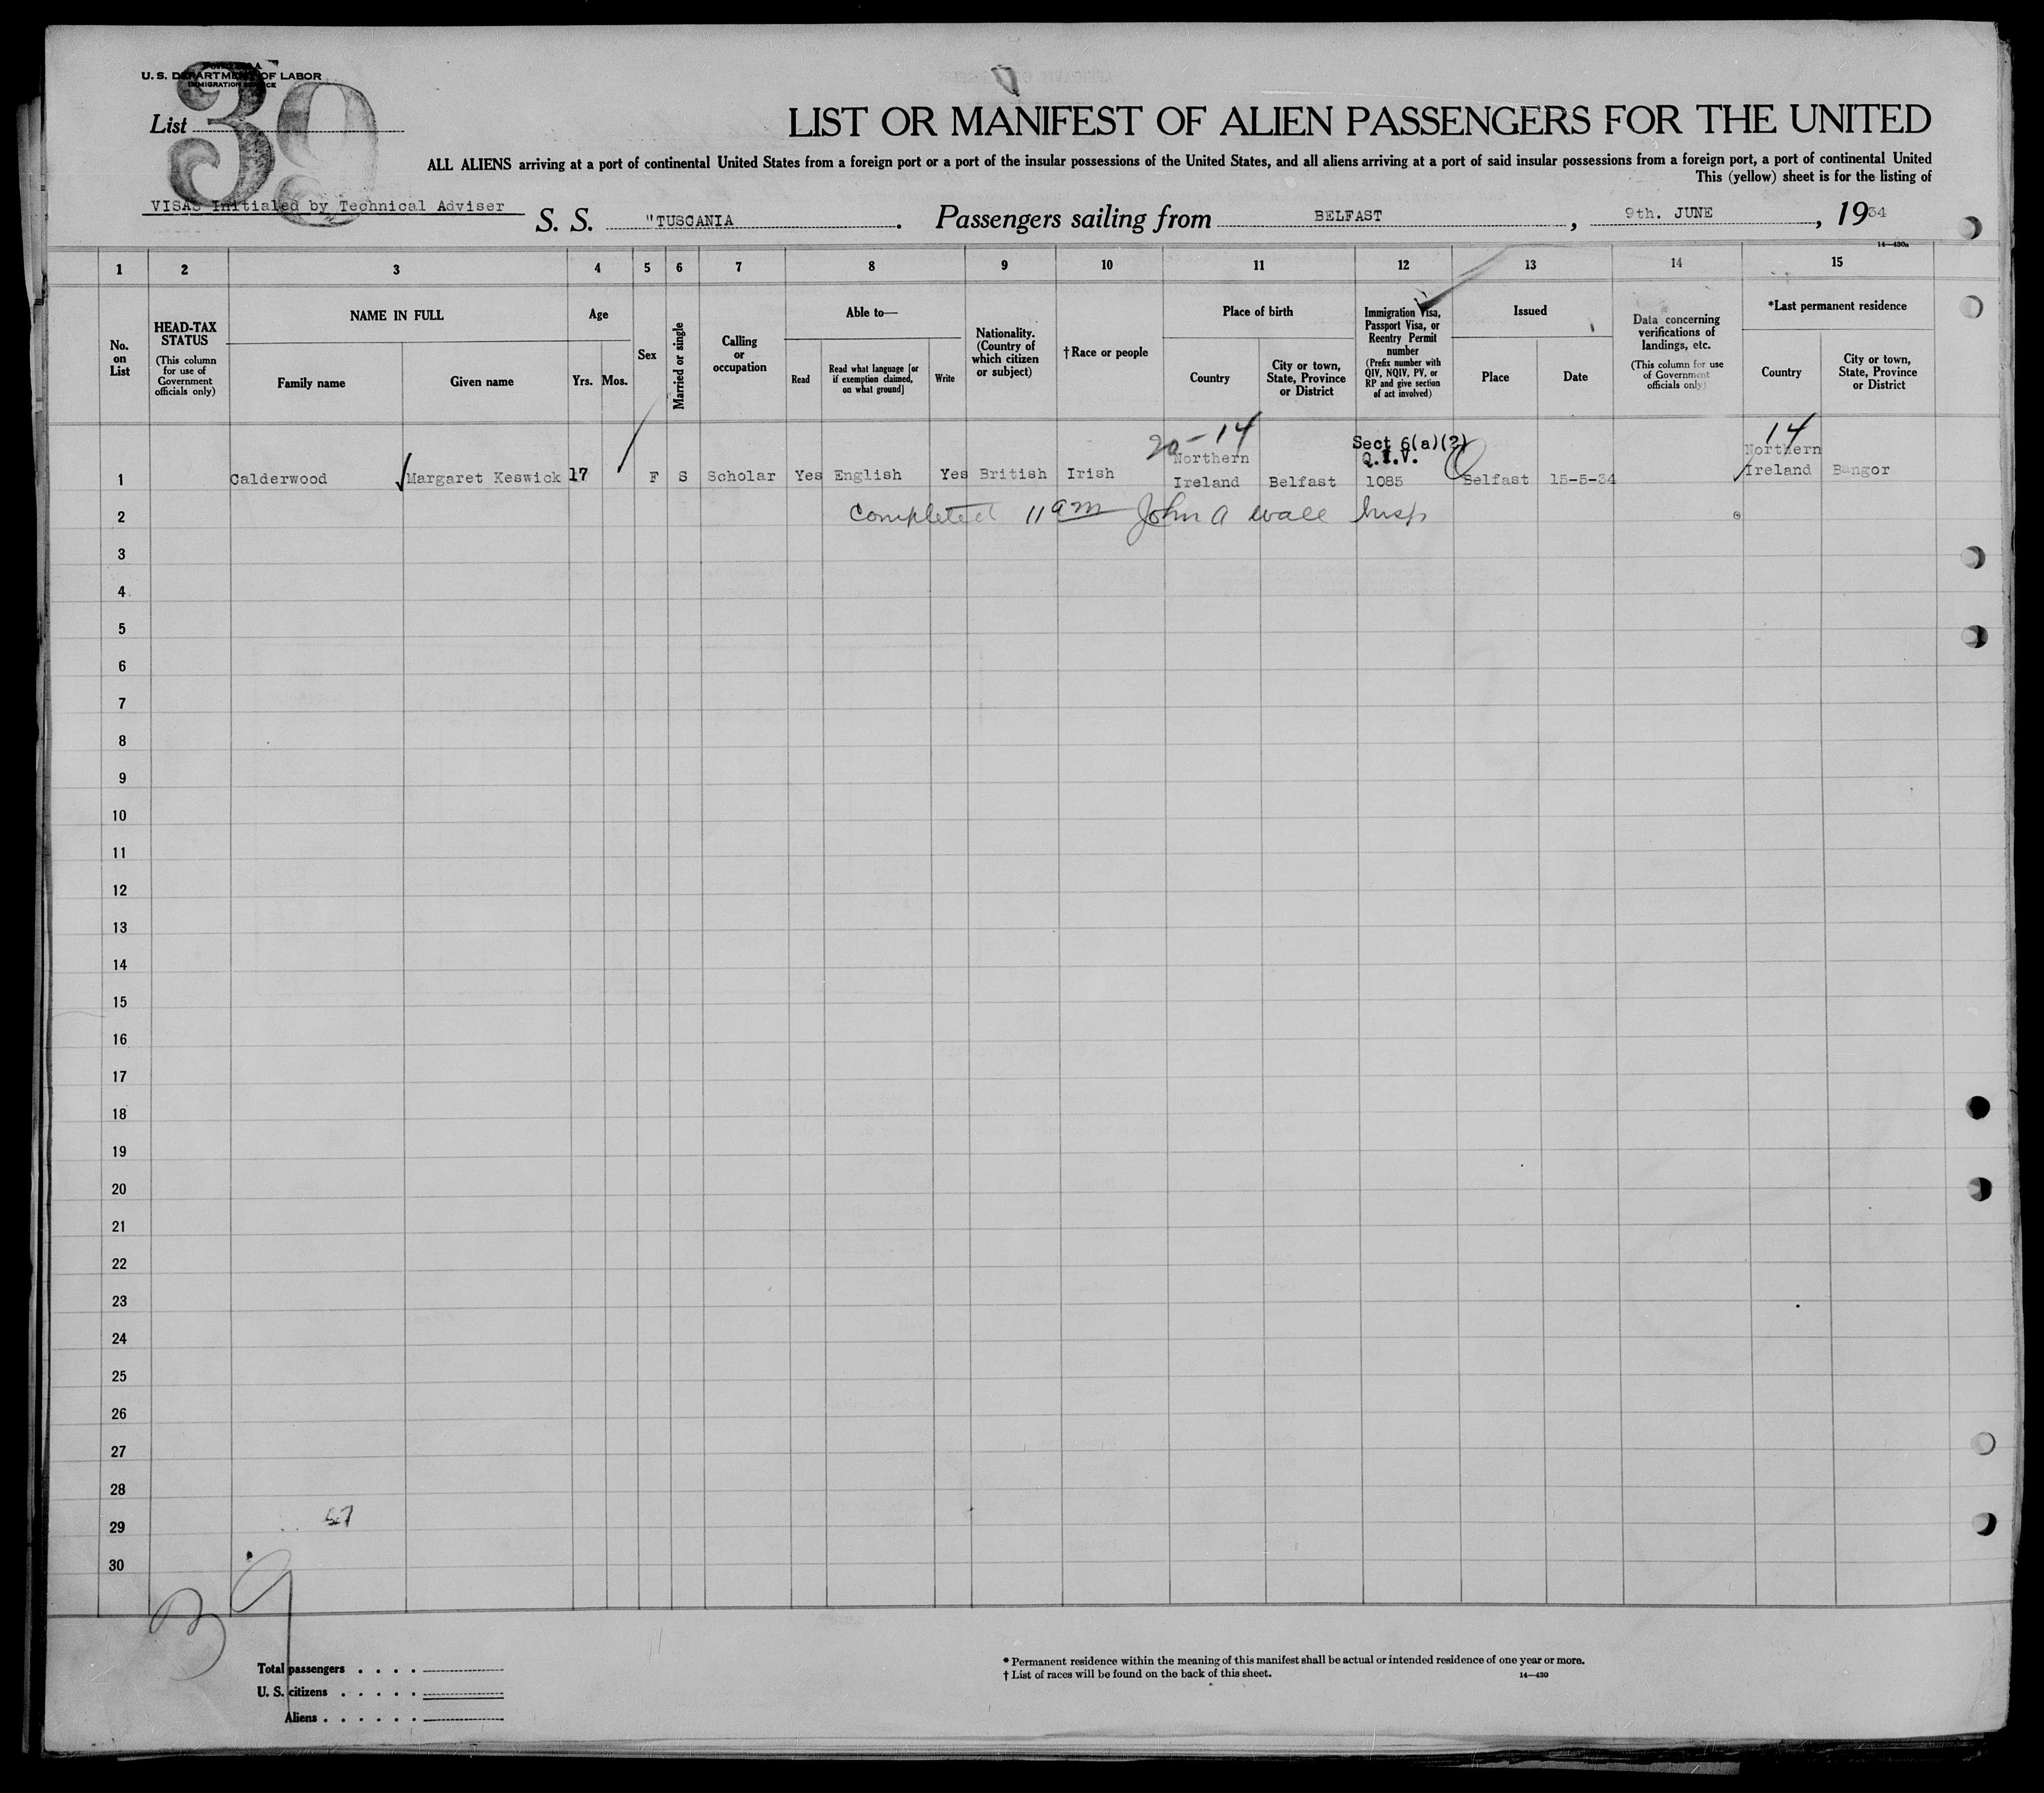 U. S. DEPARTMENT OF LABOR
IMMIGRATION SERVICE
List
39
LIST OR MANIFEST OF ALIEN PASSENGERS FOR THE UNITED
ALL ALIENS arriving at a port of continental United States from a foreign port or a port of the insular possessions of the United States, and all aliens arriving at a port of said insular possessions from a foreign port, a port of continental United
This (yellow) sheet is for the listing of
VISAS Initialed by Technical Adviser
S. S. "TUSCANIA. Passengers sailing from BELFAST, 9th. JUNE, 1934
14—430a
1 2 3 4 5 6 7 8 9 10 11 12 13 14 15
No. on List
HEAD-TAX STATUS
(This column for use of Government officials only)
NAME IN FULL
Family name
Given name
Age
Yrs. Mos.
Sex
Married or single
Calling or occupation
Able to—
Read
Read what language [or if exemption claimed, on what ground]
Write
Nationality. (Country of which citizen or subject)
† Race or people
Place of birth
Country
City or town, State, Province or District
Immigration Visa, Passport Visa, or Reentry Permit number
(Prefix number with QIV, NQIV, PV, or RP and give section of act involved)
Issued
Place
Date
Data concerning verifications of landings, etc.
(This column for use of Government officials only)
*Last permanent residence
Country
City or town, State, Province or District
20-14
Sect 6(a)(2)
14
Northern
Q.I.V.
Northern
1 Calderwood Margaret Keswick 17 F S Scholar Yes English Yes British Irish Ireland Belfast 1085 Belfast 15-5-34 Ireland Bangor
2 Completed 11 am John A Wall Insp
3
4
5
6
7
8
9
10
11
12
13
14
15
16
17
18
19
20
21
22
23
24
25
26
27
28
29
30
39
Total passengers . . . .
U. S. citizens . . . . .
Aliens . . . . . .
* Permanent residence within the meaning of this manifest shall be actual or intended residence of one year or more.
† List of races will be found on the back of this sheet.
14—430